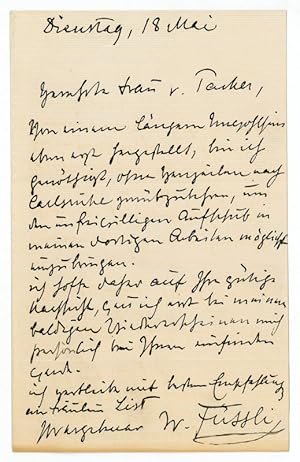 Dienstag, 18 Mai
Verehrte Frau v. Tucher,
Von einem längern Unwohlsein
eben erst hergestellt, bin ich
genöthigt, ohne Verweilen nach
Carlsruhe zurückzukehren, um
den unfreiwilligen Aufschub in
meinen dortigen Arbeiten möglichst
einzubringen.
ich hoffe daher auf Ihre gütige
Nachsicht, wenn ich erst bei meinem
baldigen Wiedererscheinen mich
persönlich bei Ihnen einfinden
werde.
ich verbleibe mit bester Empfehlung
Ihr ergebener W. Füssli